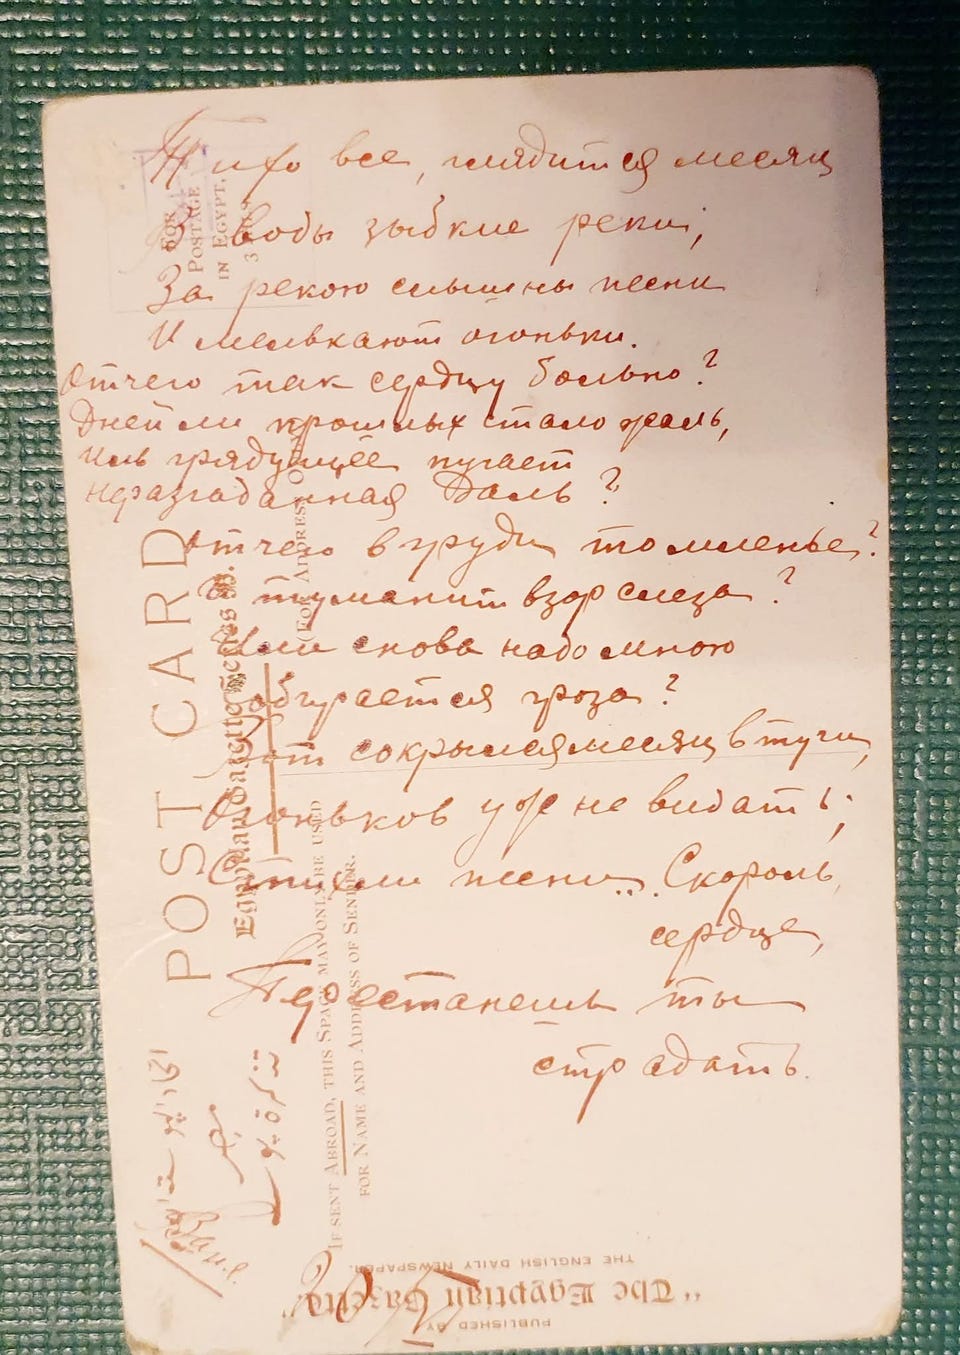 Тихо все, глядится месяц
В воды зыбкие реки,
За рекою слышны песни
И мелькают огоньки.
Отчего так сердцу больно?
Дней ли прошлых стало жаль,
Иль грядущее пугает
неразгаданная Даль?
Отчего в груди томленье?
И туманит взор слеза?
Или снова надо мною
Собирается гроза?
Вот сокрылся месяц в тучи,
Огоньков уж не видать;
Стихли песни... Скороль,
сердце,
Перестанешь ты
страдать.
FOR
POSTAGE
IN EGYPT,
POST CARD
(FOR ADDRESS ONLY
IF SENT ABROAD, THIS SPACE MAY ONLY BE USED
FOR NAME AND ADDRESS OF SENDER.
PUBLISHED BY
"The Egyptian Gazette"
THE ENGLISH DAILY NEWSPAPER.